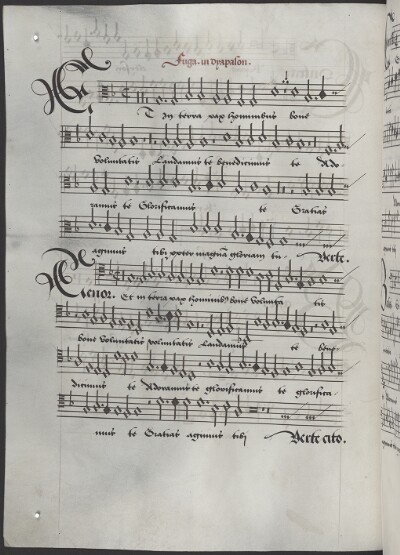 Fuga in dyapason.
Et In terra pax hominibus bone
voluntatis Laudamus te benedicimus te Ado-
ramus te Glorificamus te Gratias
agimus tibi propter magnā gloriam tu- Verte.
Tenor. Et in terra pax hominibꝰ bone volunta tis
bone voluntatis voluntatis Laudamus te bene-
dicimus te Adoramus te glorificamus te glorifica-
mus te Gratias agimus tibi Verte cito.